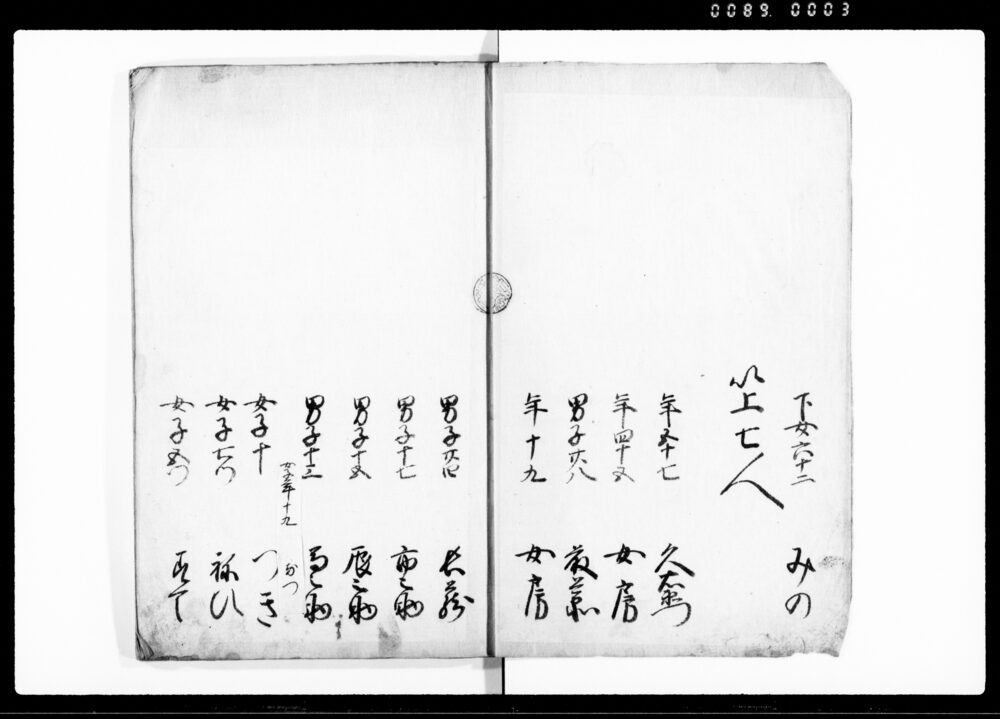 0089 0003
下女六十二 みの
以上七人
年五十七 久右衛門
年四十五 女房
男子廿八
年十九 女房
男子廿四 長蔵
男子十七 市之助
男子十五 辰之助
男子十三 之助
女子年十九
女子十 つき
女子七つ
女子五つ